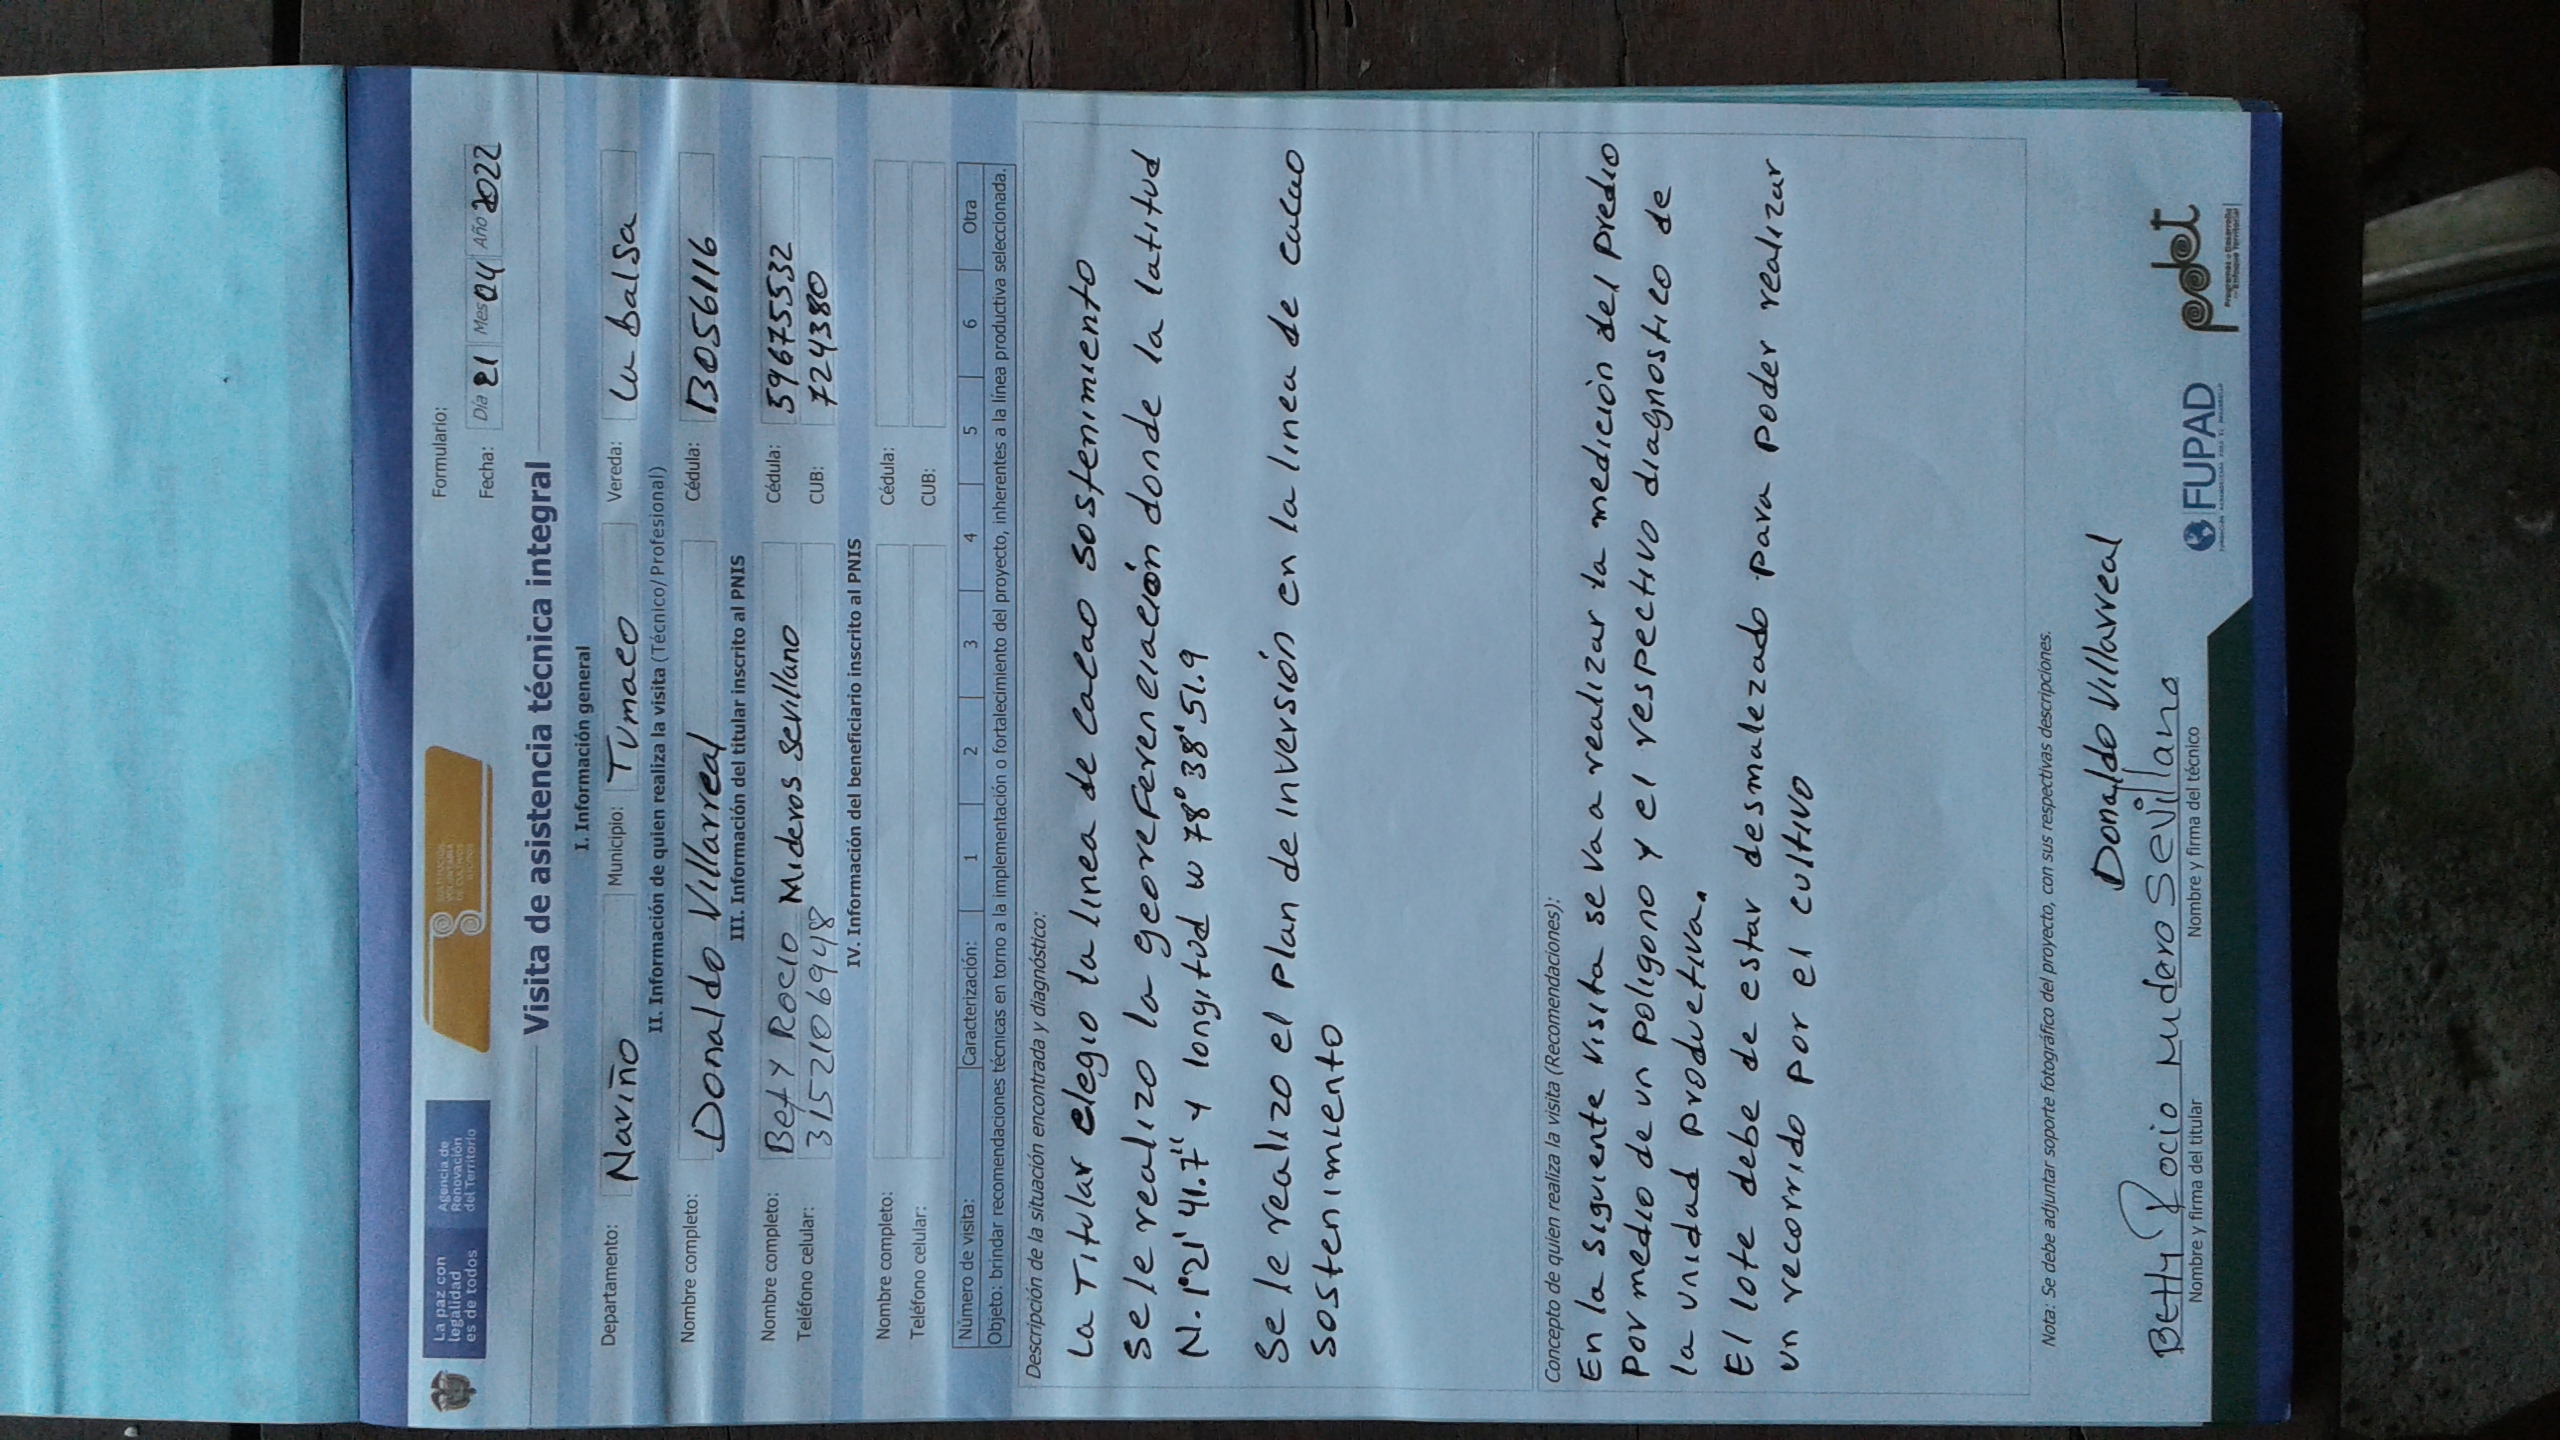 La paz con legalidad es de todos
Agencia de Renovación del Territorio
SUSTITUCIÓN VOLUNTARIA DE CULTIVOS ILÍCITOS
Formulario:
Fecha: Día 21 Mes 04 Año 2022
Visita de asistencia técnica integral
I. Información general
Departamento: Nariño Municipio: Tumaco Vereda: La balsa
II. Información de quien realiza la visita (Técnico/Profesional)
Nombre completo: Donaldo Villarreal Cédula: 13056116
III. Información del titular inscrito al PNIS
Nombre completo: Bety Rocio Mideros Sevillano Cédula: 59675532
Teléfono celular: 3152106948 CUB: 724380
IV. Información del beneficiario inscrito al PNIS
Nombre completo: Cédula:
Teléfono celular: CUB:
Número de visita: Caracterización: 1 2 3 4 5 6 Otra
Objeto: brindar recomendaciones técnicas en torno a la implementación o fortalecimiento del proyecto, inherentes a la línea productiva seleccionada.
Descripción de la situación encontrada y diagnóstico:
La Titular elegio la linea de Cacao sostenimiento
se le realizo la georeferenciación donde la latitud
N. 1°21'41.7" y longitud w 78° 38' 51.9
Se le realizo el plan de inversión en la linea de cacao
sostenimiento
Concepto de quien realiza la visita (Recomendaciones):
En la siguiente visita se va a realizar la medición del predio
Por medio de un poligono y el respectivo diagnostico de
la unidad productiva.
El lote debe de estar desmalezado para poder realizar
un recorrido por el cultivo
Nota: Se debe adjuntar soporte fotográfico del proyecto, con sus respectivas descripciones.
Donaldo Villarreal
Betty Rocio Midero Sevillano
Nombre y firma del titular Nombre y firma del técnico
FUPAD
pdet
Programas de Desarrollo con Enfoque Territorial